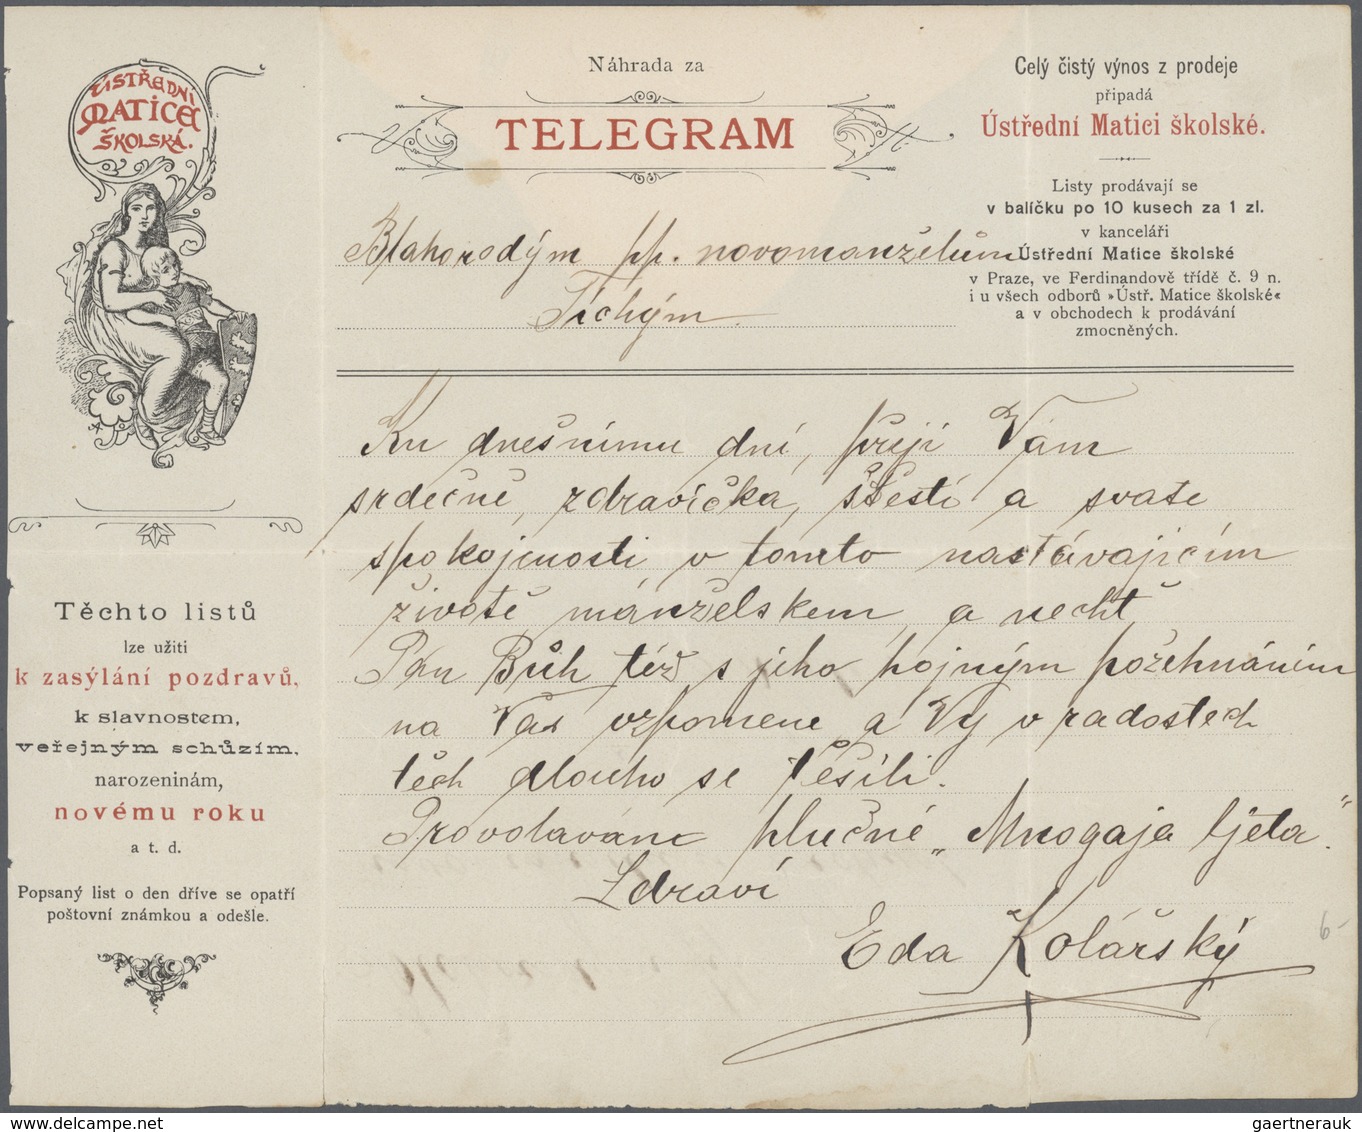 ÚSTŘEDNÍ
MATICE
ŠKOLSKÁ.
Náhrada za
TELEGRAM
Celý čistý výnos z prodeje
připadá
Ústřední Matici školské.
Listy prodávají se
v balíčku po 10 kusech za 1 zl.
v kanceláři
Ústřední Matice školské
v Praze, ve Ferdinandově třídě č. 9 n.
i u všech odborů »Ústř. Matice školské«
a v obchodech k prodávání
zmocněných.
Blahorodým pp. novomanželům
Tichým.
Ku dnešnímu dni, přeji Vám
srdečně, zdravíčka, štěstí a svaté
spokojnosti v tomto nastávajícím
životě mánželskem, a nechť
Pán Bůh též s jeho hojným požehnáním
na Vás vzpomene a Vy v radostech
těch dlouho se těšili.
Provolávám hlučné „Mnogaja ljeta."
Zdraví
Eda Kolářský
6-
Těchto listů
lze užiti
k zasýlání pozdravů,
k slavnostem,
veřejným schůzím,
narozeninám,
novému roku
a t. d.
Popsaný list o den dříve se opatří
poštovní známkou a odešle.
gaertnerauk @ delcampe.net